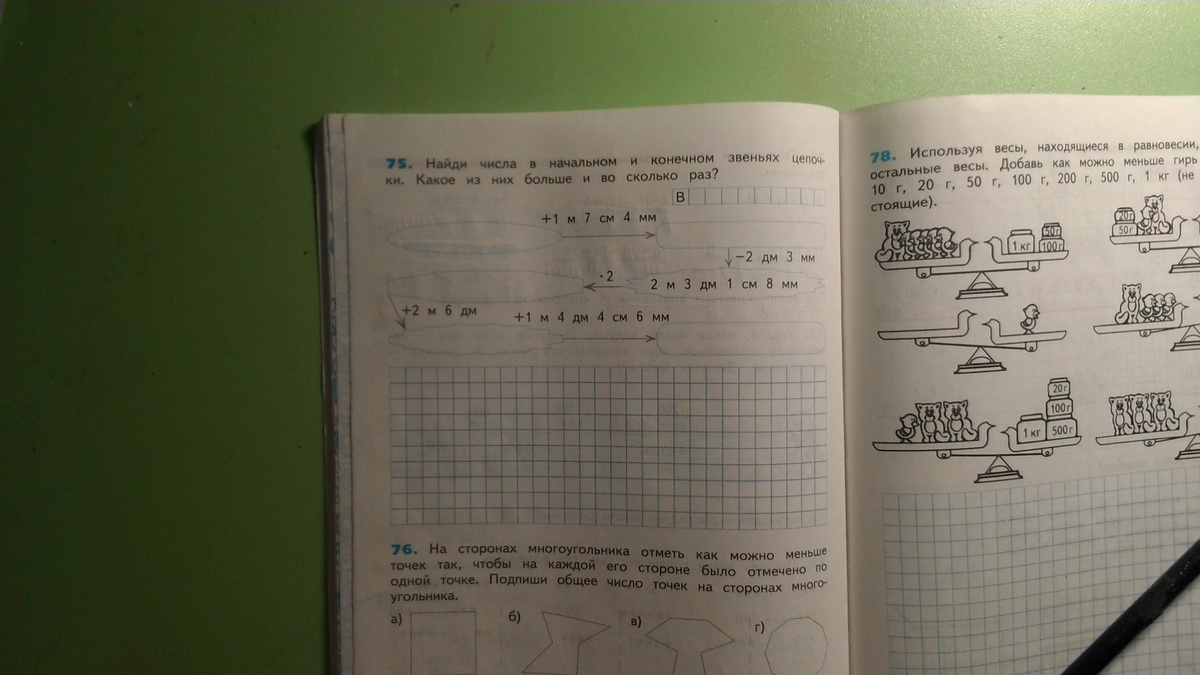 75. Найди числа в начальном и конечном звеньях цепоч-
ки. Какое из них больше и во сколько раз?
В
+1 м 7 см 4 мм
−2 дм 3 мм
·2
2 м 3 дм 1 см 8 мм
+2 м 6 дм
+1 м 4 дм 4 см 6 мм
76. На сторонах многоугольника отметь как можно меньше
точек так, чтобы на каждой его стороне было отмечено по
одной точке. Подпиши общее число точек на сторонах много-
угольника.
а)
б)
в)
г)
78. Используя весы, находящиеся в равновесии,
остальные весы. Добавь как можно меньше гирь
10 г, 20 г, 50 г, 100 г, 200 г, 500 г, 1 кг (не
стоящие).
1 кг
50г
100г
20г
50г
20г
100г
1 кг
500г